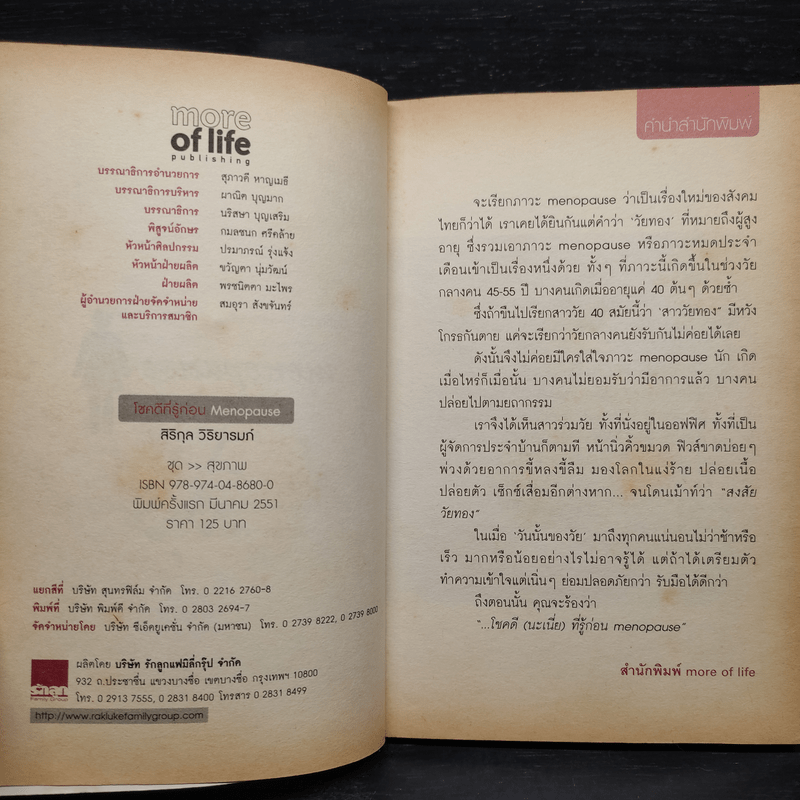 more
of life
publishing
บรรณาธิการอำนวยการ สุภาวดี หาญเมธี
บรรณาธิการบริหาร ผาณิต บุญมาก
บรรณาธิการ นริสษา บุญเสริม
พิสูจน์อักษร กมลชนก ศรีคล้าย
หัวหน้าศิลปกรรม ปรมาภรณ์ รุ่งแจ้ง
หัวหน้าฝ่ายผลิต ขวัญตา นุ่มวัฒน์
ฝ่ายผลิต พรชนิตตา มะไพร
ผู้อำนวยการฝ่ายจัดจำหน่าย สมอุรา สังขจันทร์
และบริการสมาชิก
โชคดีที่รู้ก่อน Menopause
สิริกุล วิริยารมภ์
ชุด >> สุขภาพ
ISBN 978-974-04-8680-0
พิมพ์ครั้งแรก มีนาคม 2551
ราคา 125 บาท
แยกสีที่ บริษัท สุนทรฟิล์ม จำกัด โทร. 0 2216 2760-8
พิมพ์ที่ บริษัท พิมพ์ดี จำกัด โทร. 0 2803 2694-7
จัดจำหน่ายโดย บริษัท ซีเอ็ดยูเคชั่น จำกัด (มหาชน) โทร. 0 2739 8222, 0 2739 8000
ผลิตโดย บริษัท รักลูกแฟมิลี่กรุ๊ป จำกัด
932 ถ.ประชาชื่น แขวงบางซื่อ เขตบางซื่อ กรุงเทพฯ 10800
โทร. 0 2913 7555, 0 2831 8400 โทรสาร 0 2831 8499
รักลูก
Family Group
http://www.raklukefamilygroup.com
คำนำสำนักพิมพ์
จะเรียกภาวะ menopause ว่าเป็นเรื่องใหม่ของสังคม
ไทยก็ว่าได้ เราเคยได้ยินกันแต่คำว่า 'วัยทอง' ที่หมายถึงผู้สูง
อายุ ซึ่งรวมเอาภาวะ menopause หรือภาวะหมดประจำ
เดือนเข้าเป็นเรื่องหนึ่งด้วย ทั้งๆ ที่ภาวะนี้เกิดขึ้นในช่วงวัย
กลางคน 45-55 ปี บางคนเกิดเมื่ออายุแค่ 40 ต้นๆ ด้วยซ้ำ
ซึ่งถ้าขืนไปเรียกสาววัย 40 สมัยนี้ว่า 'สาววัยทอง" มีหวัง
โกรธกันตาย แค่จะเรียกว่าวัยกลางคนยังรับกันไม่ค่อยได้เลย
ดังนั้นจึงไม่ค่อยมีใครใส่ใจภาวะ menopause นัก เกิด
เมื่อไหร่ก็เมื่อนั้น บางคนไม่ยอมรับว่ามีอาการแล้ว บางคน
ปล่อยไปตามยถากรรม
เราจึงได้เห็นสาวร่วมวัย ทั้งที่นั่งอยู่ในออฟฟิศ ทั้งที่เป็น
ผู้จัดการประจำบ้านก็ตามที หน้านิ่วคิ้วขมวด ฟิวส์ขาดบ่อยๆ
พ่วงด้วยอาการขี้หลงขี้ลืม มองโลกในแง่ร้าย ปล่อยเนื้อ
ปล่อยตัว เซ็กซ์เสื่อมอีกต่างหาก... จนโดนเม้าท์ว่า "สงสัย
วัยทอง"
ในเมื่อ 'วันนั้นของวัย' มาถึงทุกคนแน่นอนไม่ว่าช้าหรือ
เร็ว มากหรือน้อยอย่างไรไม่อาจรู้ได้ แต่ถ้าได้เตรียมตัว
ทำความเข้าใจแต่เนิ่นๆ ย่อมปลอดภัยกว่า รับมือได้ดีกว่า
ถึงตอนนั้น คุณจะร้องว่า
"...โชคดี (นะเนี่ย) ที่รู้ก่อน menopause"
สำนักพิมพ์ more of life